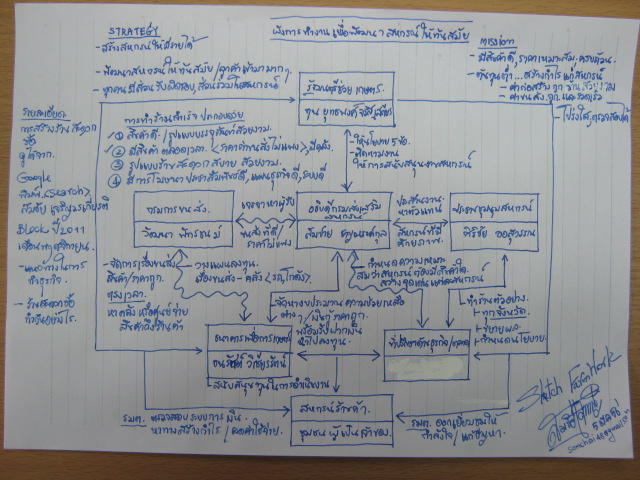 ผังการทำงาน เพื่อพัฒนา สหกรณ์ ให้ทันสมัย
STRATEGY
- สร้างสหกรณ์ให้มีรายได้
- พัฒนาสหกรณ์ ให้ทันสมัย / ลูกค้าเข้ามามากๆ
- ทุกคนมีส่วนรับผิดชอบ, ส่วนร่วมในสหกรณ์
mission
- มีสินค้าดี, ราคาเหมาะสม, ครบถ้วน
- ต้นทุนต่ำ... สร้างกำไร แก่สหกรณ์
- ค่าก่อสร้าง ถูก
- ค่าขนส่ง ถูก และรวดเร็ว
- โปร่งใส, ตรวจสอบได้
รัฐมนตรีช่วย เกษตร
การทำร้านสำเร็จ ประกอบด้วย
① สินค้าดี / รูปแบบบรรจุภัณฑ์สวยงาม
② มีสินค้า ตลอดเวลา <ราคาค่าขนส่งไม่แพง>, มีคลัง
③ รูปแบบร้าน สะดวก สบาย สวยงาม
④ มีการโฆษณา ประชาสัมพันธ์ดี, แผนธุรกิจดี, ระบบดี
- ให้นโยบาย 5 ข้อ
- ติดตามงาน
ให้การสนับสนุนงานสหกรณ์
รายละเอียด
การสร้างร้านสะดวก
ซื้อ
ดูได้จาก
Google
พิมพ์ <Search>
สมชัย เจริญวรเกียรติ
BLOCK ปี 2011
เดือนพฤศจิกายน
- แนวทางในการ
ทำธุรกิจ
- ร้านสะดวกซื้อ
ทำเงินอย่างไร
กรมการขนส่ง
วัฒนา พัทรชนม์
เจรจาหาผู้รับ
ขนส่งที่ดี /
ราคาไม่แพง
อธิบดีกรมส่งเสริม
สหกรณ์
สมชาย ชาญณรงค์กุล
ประสานงาน
หาตัวแทน
สหกรณ์ที่มี
ศักยภาพ
ประธานชุมนุมสหกรณ์
ศิริชัย ออสุวรรณ
- จัดการเรื่องขนส่ง
สินค้า / ราคาถูก
ตรงเวลา
หาคลัง เพื่อศูนย์จ่าย
สินค้าถึงร้านค้า
วางแผนลงทุน
เรื่องขนส่ง - คลัง <รถ, โกดัง>
กำหนดความเหมาะ
สมว่าสหกรณ์ต้องมีกำไร
- จัดหางบประมาณ ความช่วยเหลือ
ต่างๆ / เงินกู้ ราคาถูก
พร้อมรับฝากเงิน
นำไปลงทุน
- ทำร้านตัวอย่าง
- ทุกจังหวัด
- ขยายผล
- กำหนดนโยบาย
ธนาคารเพื่อการเกษตร
ที่ปรึกษาด้านธุรกิจ / ตลาด
- สนับสนุนทุนในการดำเนินงาน
สหกรณ์ร้านค้า
ชุมชน ผู้เป็นเจ้าของ
รมต. ตรวจสอบระบบการเงิน
หาทางสร้างกำไร / ลดค่าใช้จ่าย
รมต. ออกเยี่ยมชมให้
กำลังใจ / แก้ปัญหา